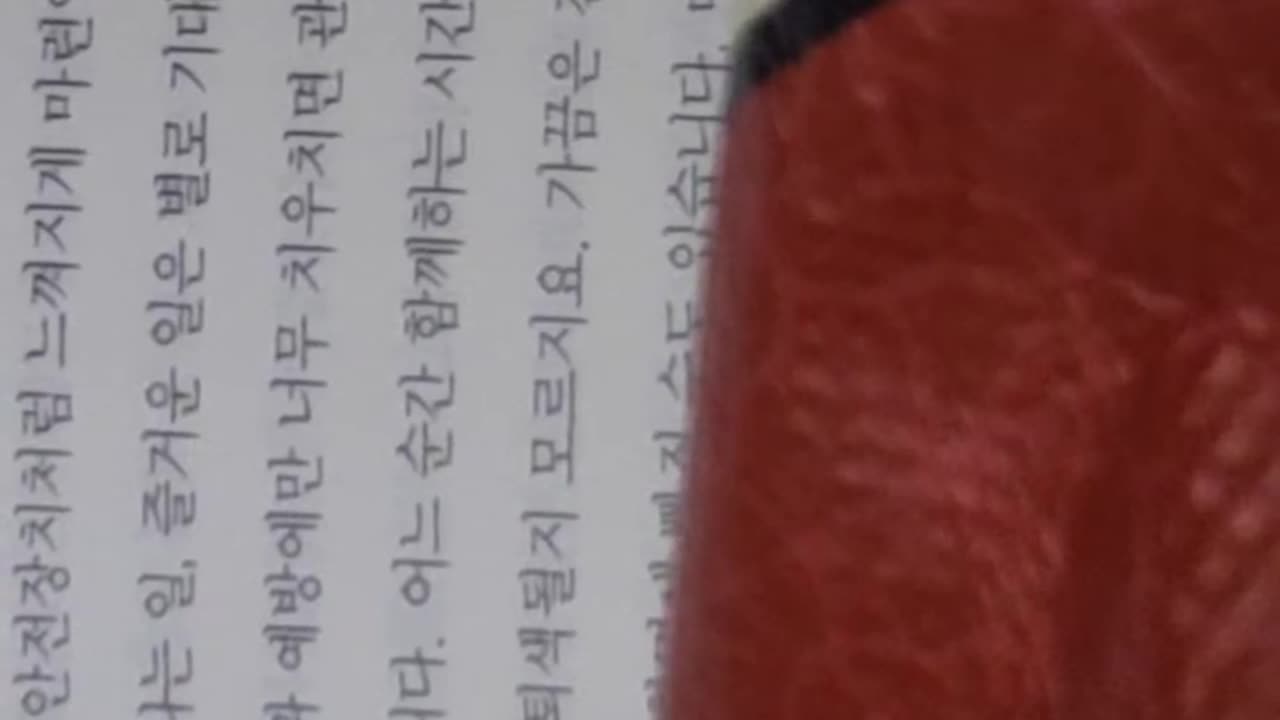 안전장치처럼 느껴지게 마련
는 일, 즐거운 일은 별로 기대
예방에만 너무 치우치면 관
다. 어느 순간 함께하는 시간
퇴색될지 모르지요. 가끔은
수도 있습니다.